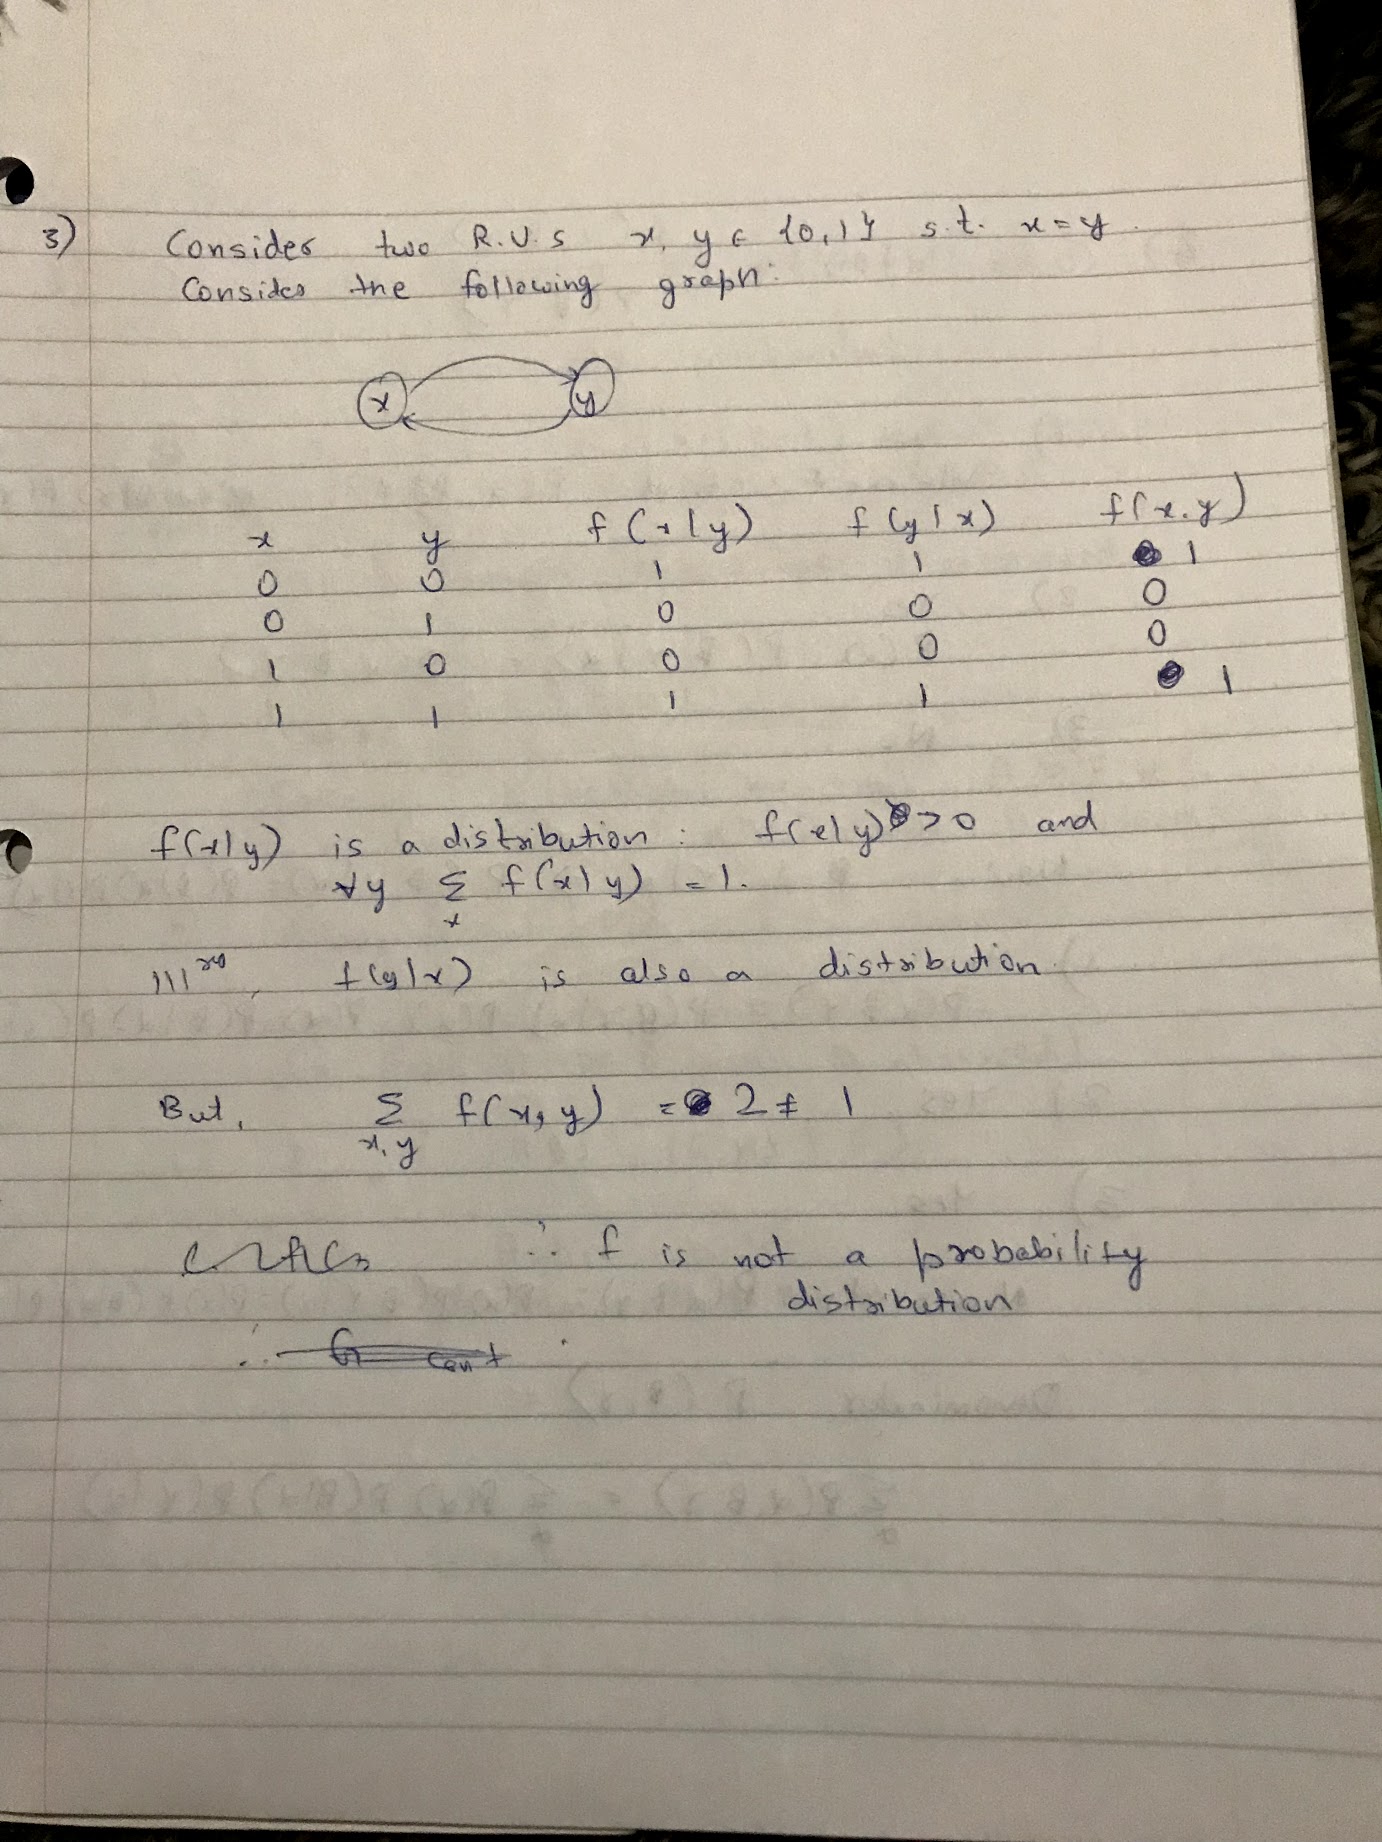 3) Consider two R.V.s x, y ∈ {0,1} s.t. x = y.
Consider the following graph:
x y
x y f(x|y) f(y|x) f(x,y)
0 0 1 1 1
0 1 0 0 0
1 0 0 0 0
1 1 1 1 1
f(x|y) is a distribution: f(x|y) > 0 and
∀y Σ_x f(x|y) = 1.
lllry, f(y|x) is also a distribution.
But, Σ_{x,y} f(x,y) = 2 ≠ 1
∴ f is not a probability
distribution
∴ G cant